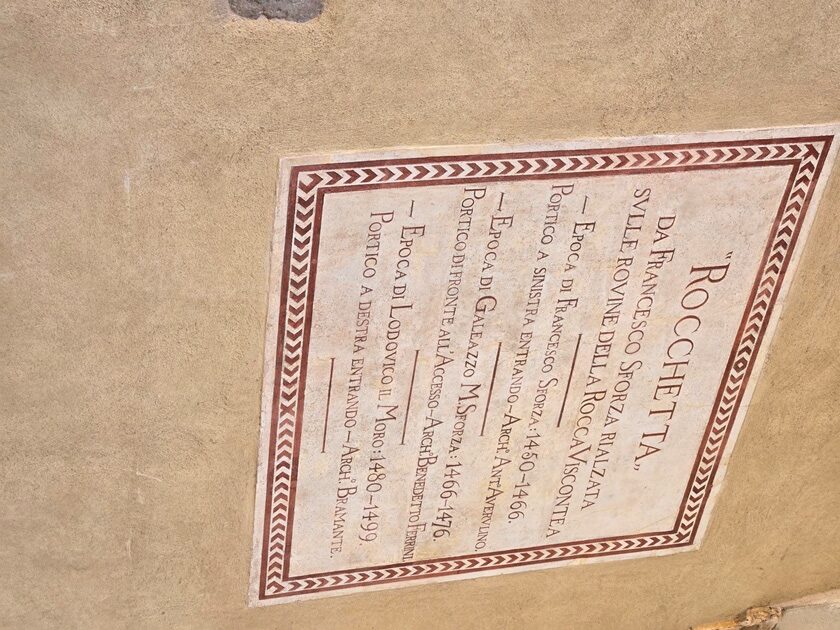 "ROCCHETTA„
DA FRANCESCO SFORZA RIALZATA
SVLLE ROVINE DELLA ROCCA VISCONTEA
— EPOCA DI FRANCESCO SFORZA: 1450–1466.
PORTICO A SINISTRA ENTRANDO – ARCHº. ANTº AVERVLINO.
— EPOCA DI GALEAZZO M. SFORZA: 1466–1476.
PORTICO DI FRONTE ALL'ACCESSO – ARCHº. BENEDETTO FERRINI.
— EPOCA DI LODOVICO IL MORO: 1480–1499.
PORTICO A DESTRA ENTRANDO – ARCHº. BRAMANTE.